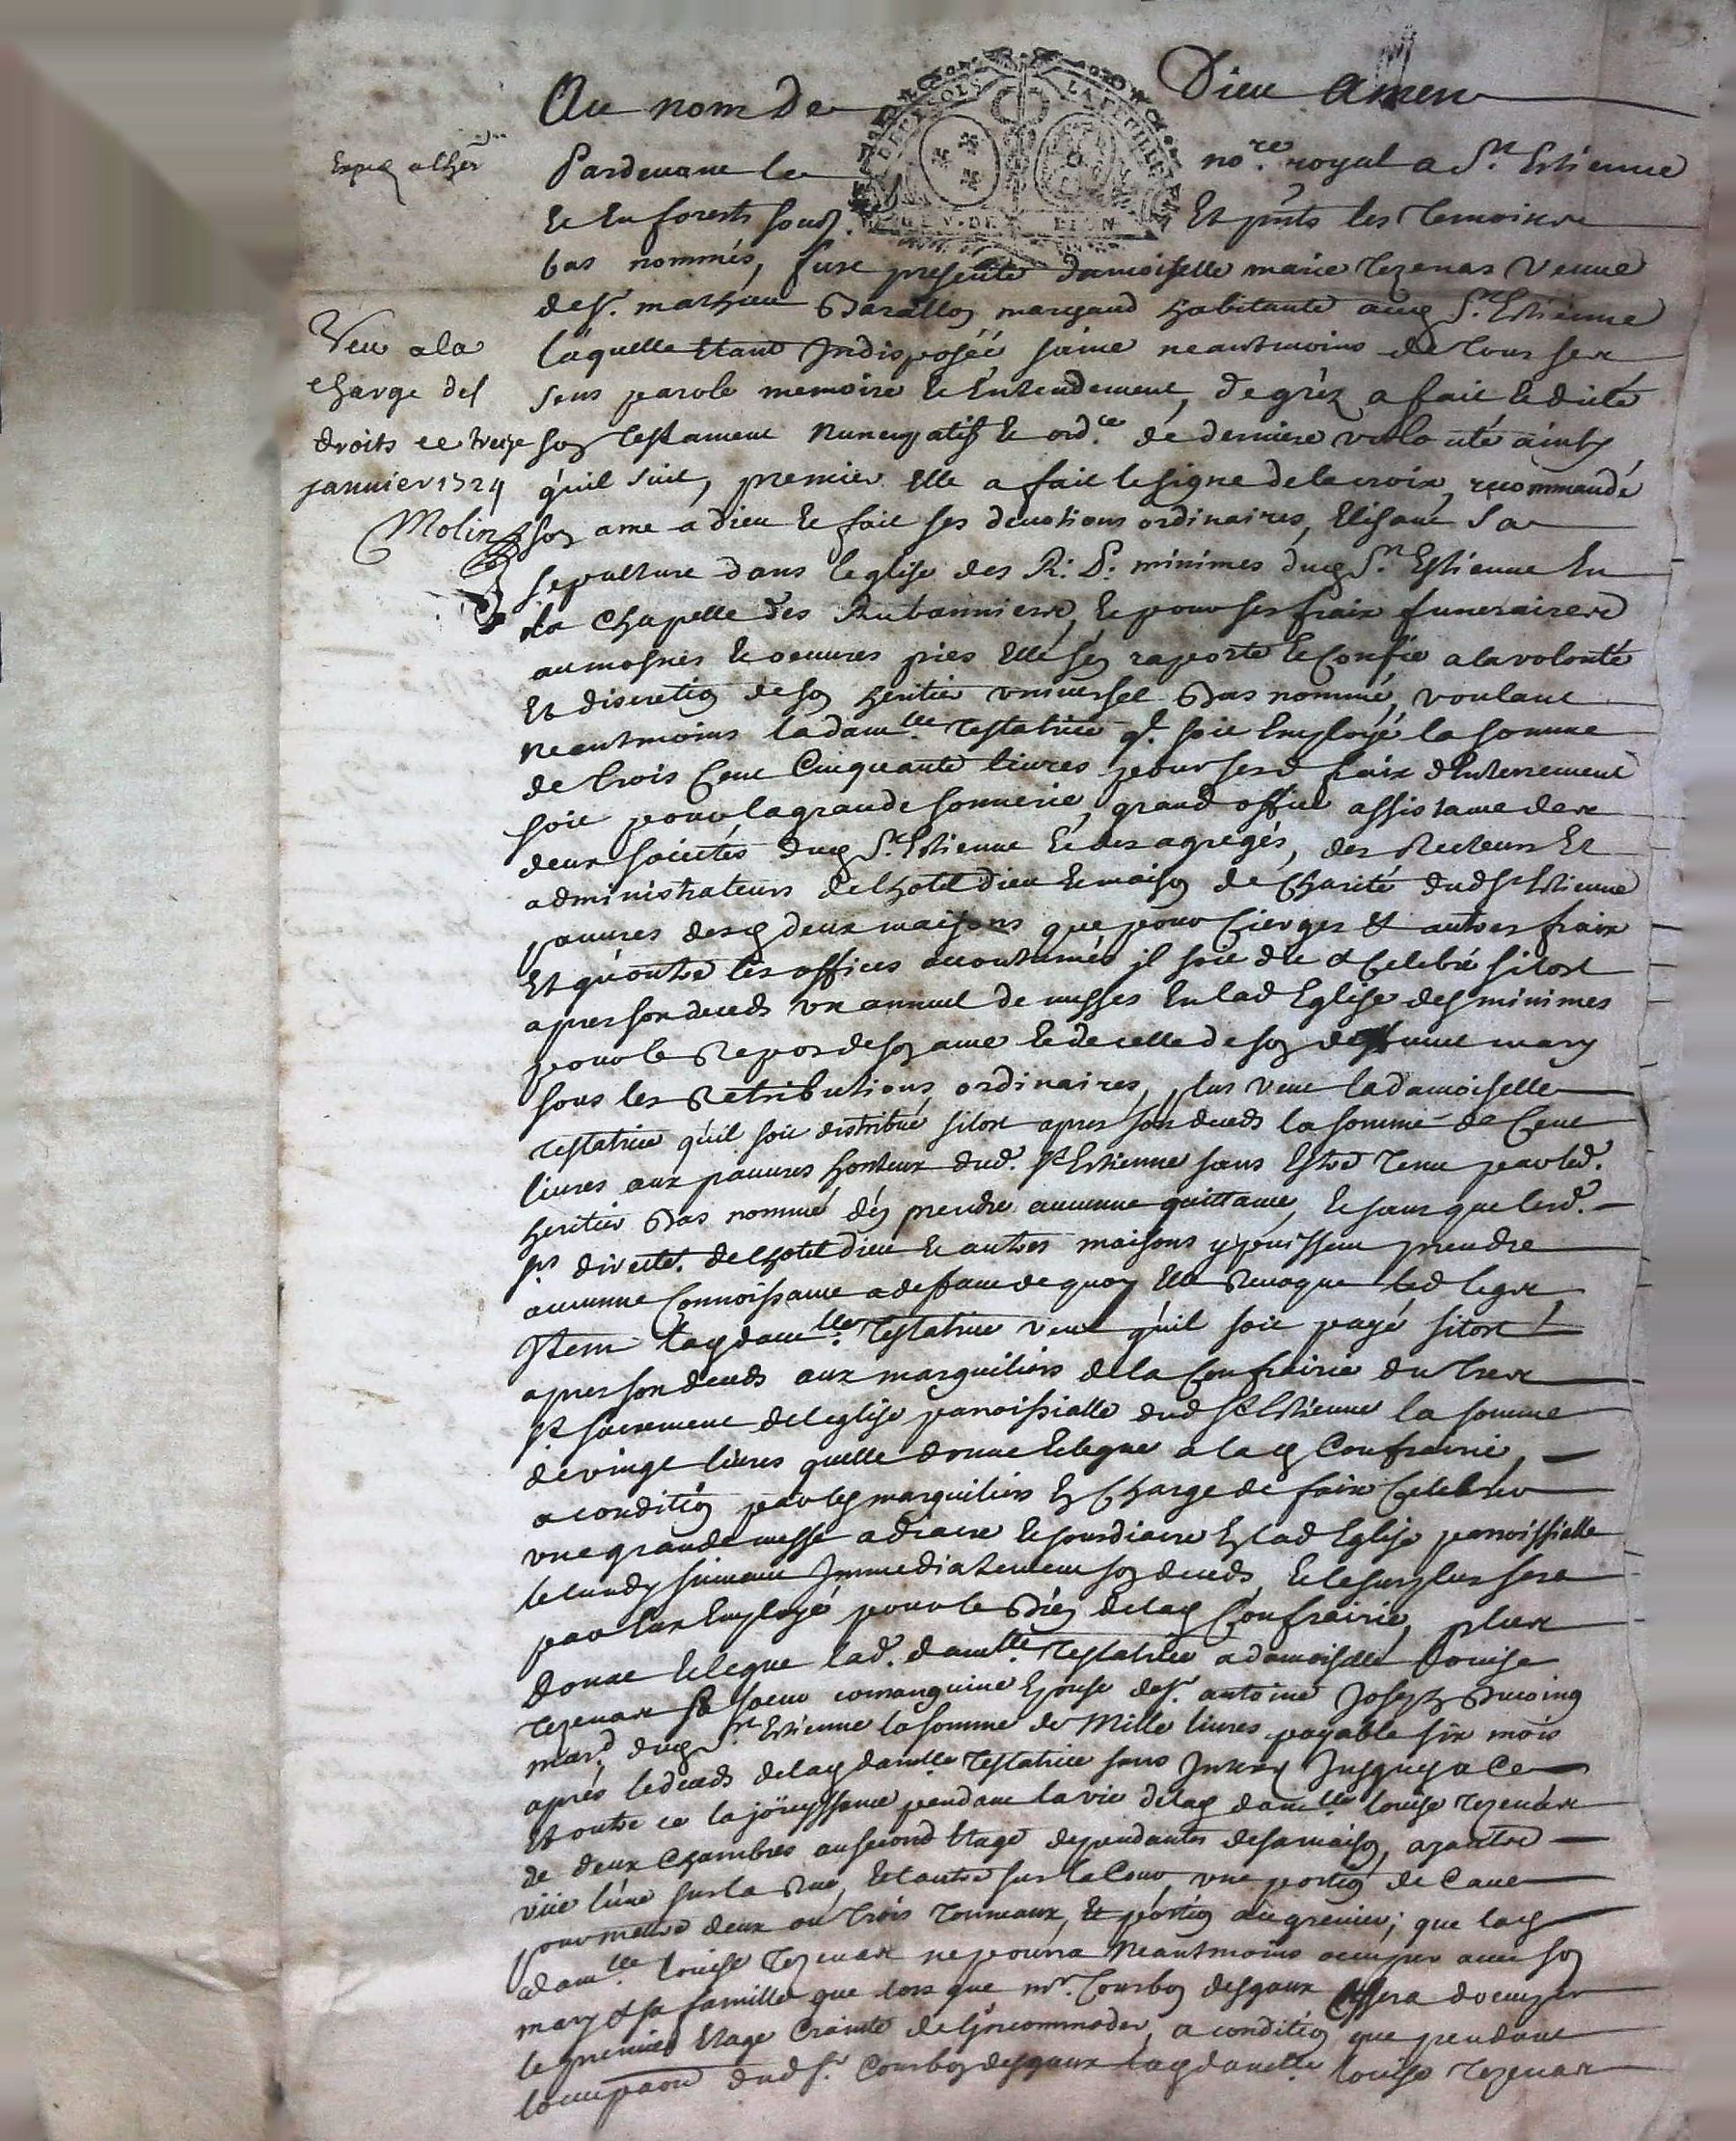 Au nom de Dieu amen
Pardevant le no.re royal a S.t Estienne
Et En forests souz. Et pnts les temoins
bas nommés, fust presente damoiselle marie tezenas veuve
de s.r mathieu Barallon marchand habitante aud S.t Estienne
laquelle Etant Indisposéé saine neantmoins de tous ses
sens parole memoire Et Entendement, de gréz a fait Et dicté
son testament nuncupatif Et ord.ce de derniere volonté ainsy
quil suit, premier Elle a fait le signe de la croix, recommandé
son ame a dieu Et fait ses devotions ordinaires, Elisant Sa
sepulture dans leglise des R: P: minimes dud S.t Estienne En
la Chapelle des Rubanniers, Et pour ses fraix funeraires
aumosnes Et oeuvres pies Elle s'en raporte Et Confie a la volonté
Et discretion de son heritier universel Bas nommé, voulant
neantmoins lad dam.lle testatrice q.l soit Employé la somme
de trois Cent Cinquante livres pour sesd fraix d'Enterrement
soit pour la grande sonnerie, grand office assistance des
deux societés dud S.t Estienne Et des agregés, des Recteurs Et
administrateurs de lhotel dieu Et maison de Charité dud St Estienne
pauvres desd deux maisons que pour Cierges & autres fraix
Et qu'outre les offices acoutumés il soit dit & Celebré sitost
apres son deceds un annuel de messes En lad Eglise des minimes
pour le Repos de son ame Et de celle de son deffunt mary
sous les Retributions ordinaires, plus veut la damoiselle
testatrice quil soit distribué sitost apres son deceds la somme de Cent
livres aux pauvres honteux dud. St Estienne sans Estre tenu par led.
heritier Bas nommé d'en prendre aucunne quittance, Et sans que lesd.
s.rs direct.rs de lhotel dieu Et autres maisons y puissent prendre
aucunne Connoissance a deffaut de quoy Elle Revoque led legs
Item lad dam.lle testatrice veut quil soit payé sitost
apres son deceds aux marguilliers de la Confrairie du tres
St sacrement de leglise paroissialle dud St Estienne la somme
de vingt livres quelle donne Et legue a lad Confrairie,
a condition par les marguilliers En Charge de faire Celebrer
une grande messe a diacre Et sousdiacre En lad Eglise paroissialle
le lundy suivant Immediatement son deceds, Et le surplus sera
par Eux Employé pour le Bien de lad Confrairie, plus
donne Et legue lad. dam.lle testatrice a damoiselle Louise
tezenas sa soeur consanguine Epouse de s.r antoine Joseph
mar.d dud S.t Estienne la somme de Mille livres payable six mois
aprés le deceds de lad dam.lle testatrice sans Interest Jusques a Ce
Et outre ce la joüyssance pendant la vie de lad dam.lle louise tezenas
de deux Chambres au second Etage dependantes de sa maison, ayant
vüe lune sur la Rue, Et lautre sur la Cour, une portion de Cave
pour mettre deux ou trois tonneaux, Et portion du grenier; que lad
dam.lle louise tezenas ne pourra neantmoins occuper avec son
mary & sa famille que lors que m.r Courbon desgaux Cessera doccuper
le premier Etage Crainte de l'Incommoder, a condition que pendant
loccupaon dud s.r Courbon desgaux lad dam.lle louise tezenas
Exped alher
Veu a la
charge des
droits ce treize
janvier 1724
Molin
GEN. DE LION